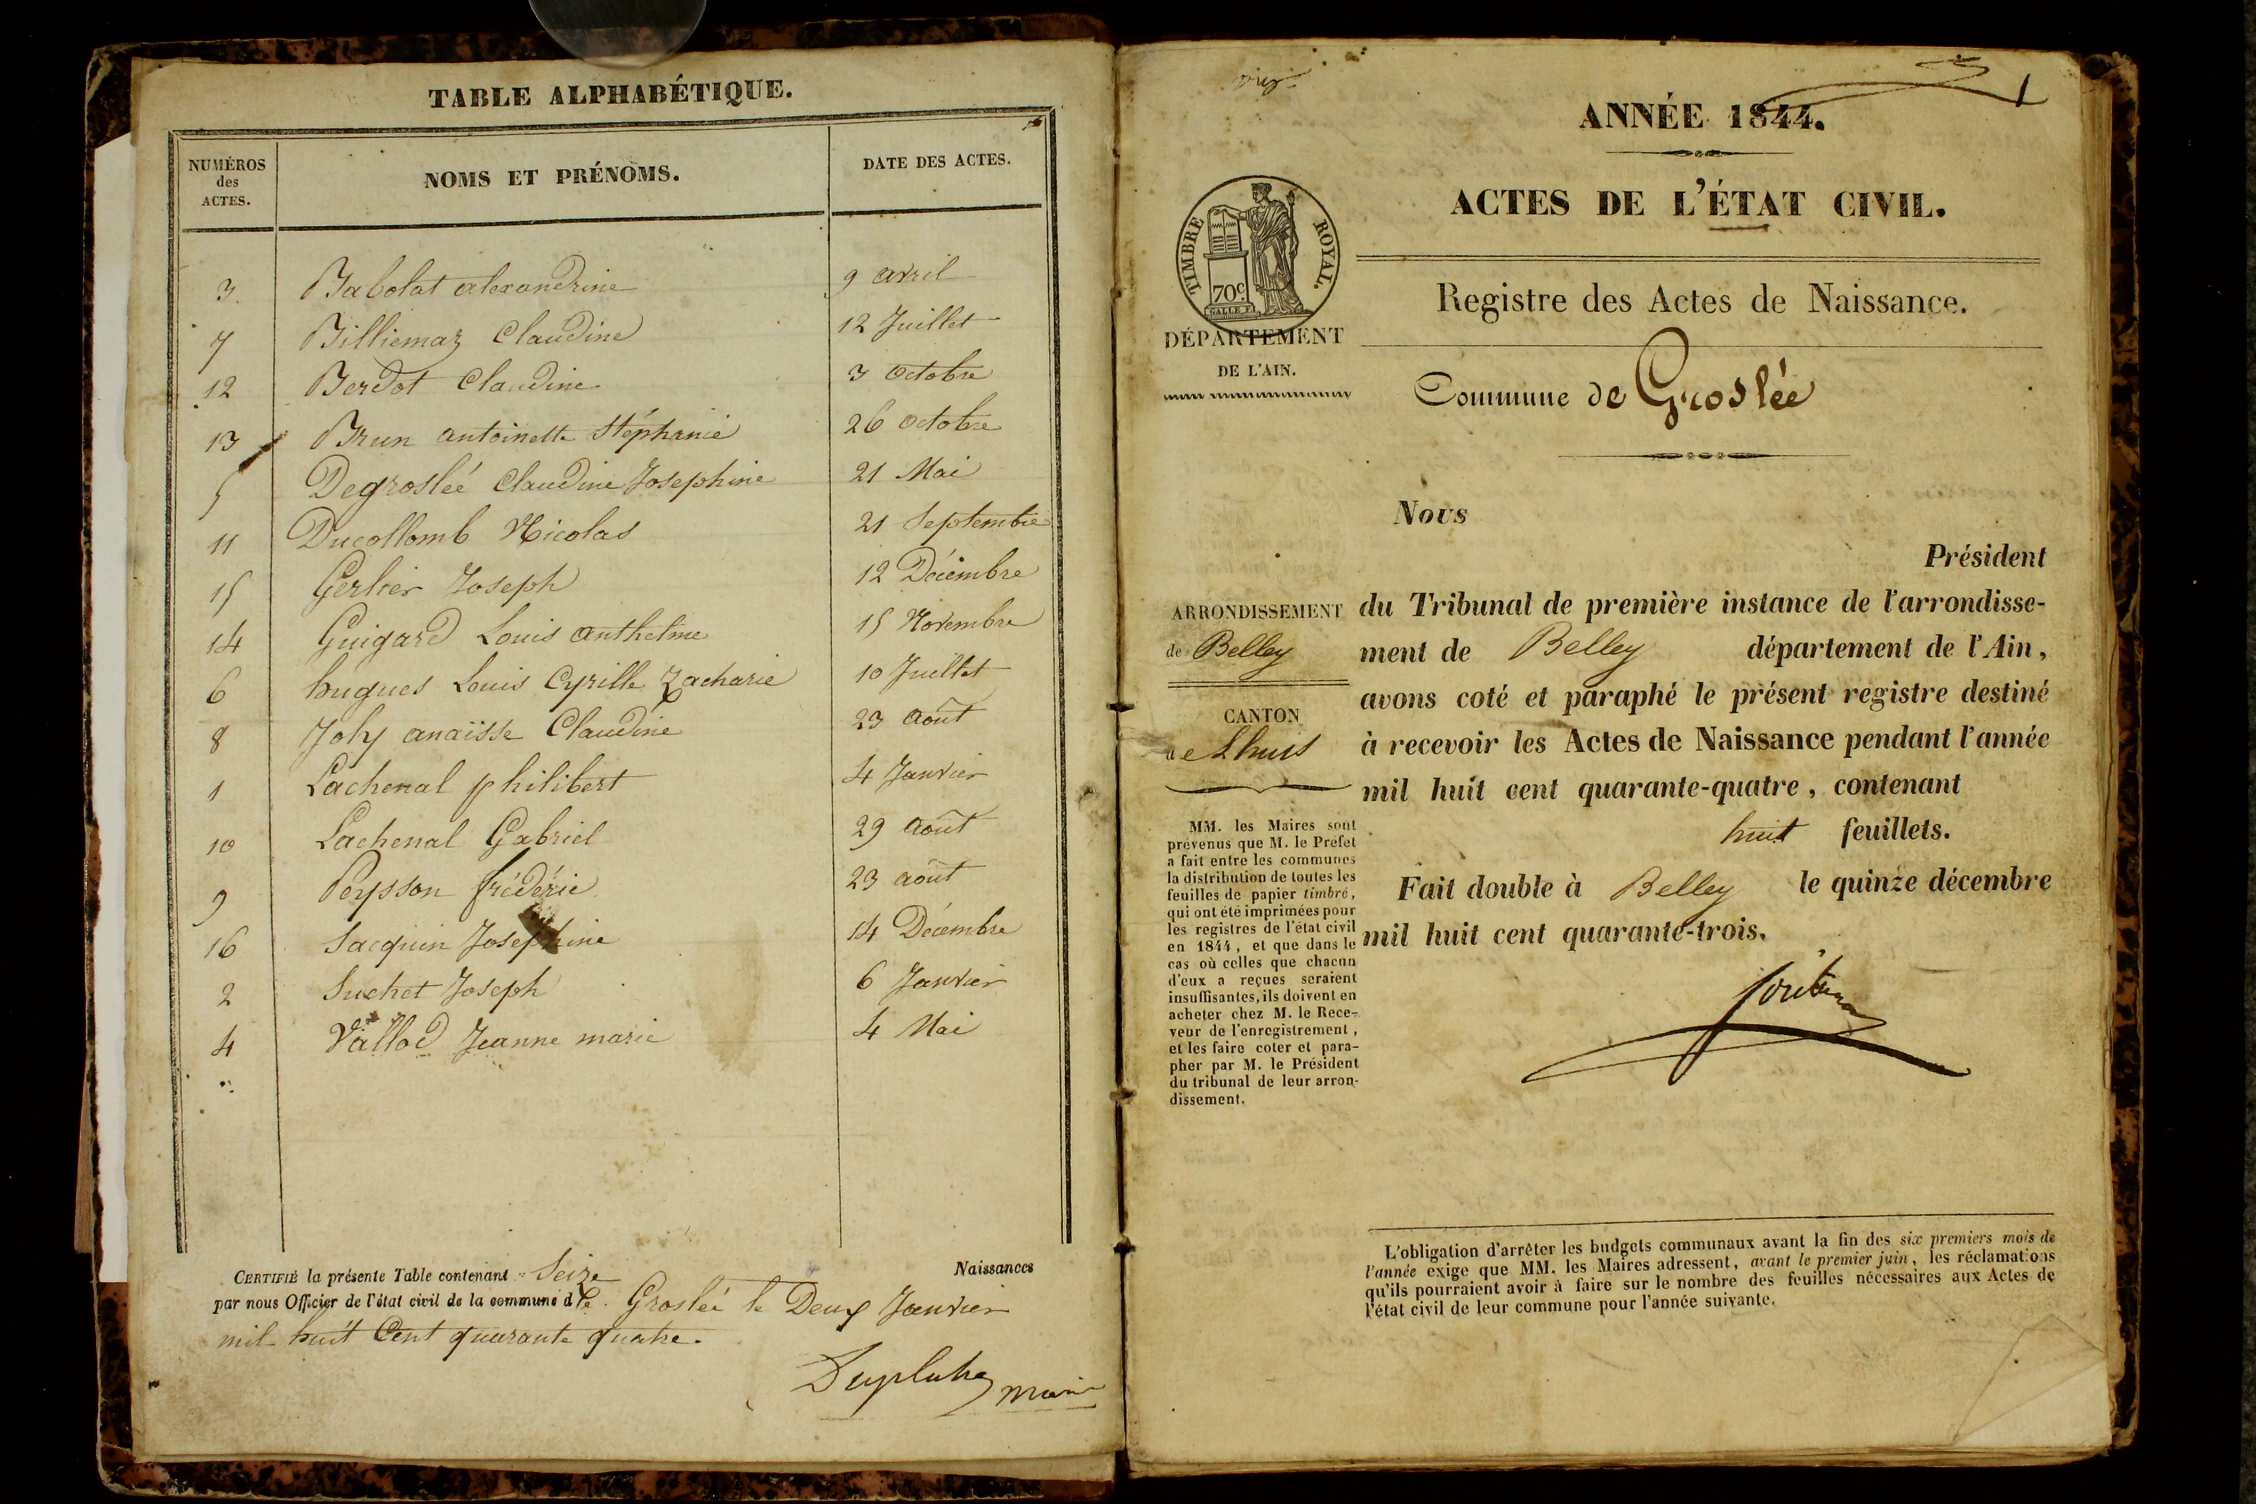 TABLE ALPHABÉTIQUE.
NUMÉROS
des
ACTES.
NOMS ET PRÉNOMS.
DATE DES ACTES.
3 Babolat alexandrine 9 avril
7 Billiemaz Claudine 12 Juillet
12 Berdot Claudine 3 octobre
13 Brun antoinette Stéphanie 26 octobre
5 Degroslée Claudine Josephine 21 Mai
11 Ducollomb Nicolas 21 Septembre
15 Gerlier Joseph 12 Décembre
14 Guigard Louis anthelme 15 Novembre
6 hugues Louis Cyrille Zacharie 10 Juillet
8 Joly anaïsse Claudine 23 août
1 Lachenal philibert 4 Janvier
10 Lachenal Gabriel 29 août
9 Peysson frédéric 23 août
16 Sacquin Josephine 14 Décembre
2 Suchet Joseph 6 Janvier
4 Vallod Jeanne marie 4 Mai
CERTIFIÉ la présente Table contenant Seize Naissances
par nous Officier de l'état civil de la commune de Groslée le Deux Janvier
mil huit Cent quarante quatre.
maire
1
ANNÉE 1844.
ACTES DE L'ÉTAT CIVIL.
TIMBRE ROYAL.
70c.
GALLE F.
Registre des Actes de Naissance.
DÉPARTEMENT
DE L'AIN.
Commune de Groslée
Nous
Président
ARRONDISSEMENT
de Belley
CANTON
de Lhuis
du Tribunal de première instance de l'arrondisse-
ment de Belley département de l'Ain,
avons coté et paraphé le présent registre destiné
à recevoir les Actes de Naissance pendant l'année
mil huit cent quarante-quatre, contenant
huit feuillets.
Fait double à Belley le quinze décembre
mil huit cent quarante-trois.
MM. les Maires sont
prévenus que M. le Préfet
a fait entre les communes
la distribution de toutes les
feuilles de papier timbré,
qui ont été imprimées pour
les registres de l'état civil
en 1844, et que dans le
cas où celles que chacun
d'eux a reçues seraient
insuffisantes, ils doivent en
acheter chez M. le Rece-
veur de l'enregistrement,
et les faire coter et para-
pher par M. le Président
du tribunal de leur arron-
dissement.
L'obligation d'arrêter les budgets communaux avant la fin des six premiers mois de
l'année exige que MM. les Maires adressent, avant le premier juin, les réclamations
qu'ils pourraient avoir à faire sur le nombre des feuilles nécessaires aux Actes de
l'état civil de leur commune pour l'année suivante.